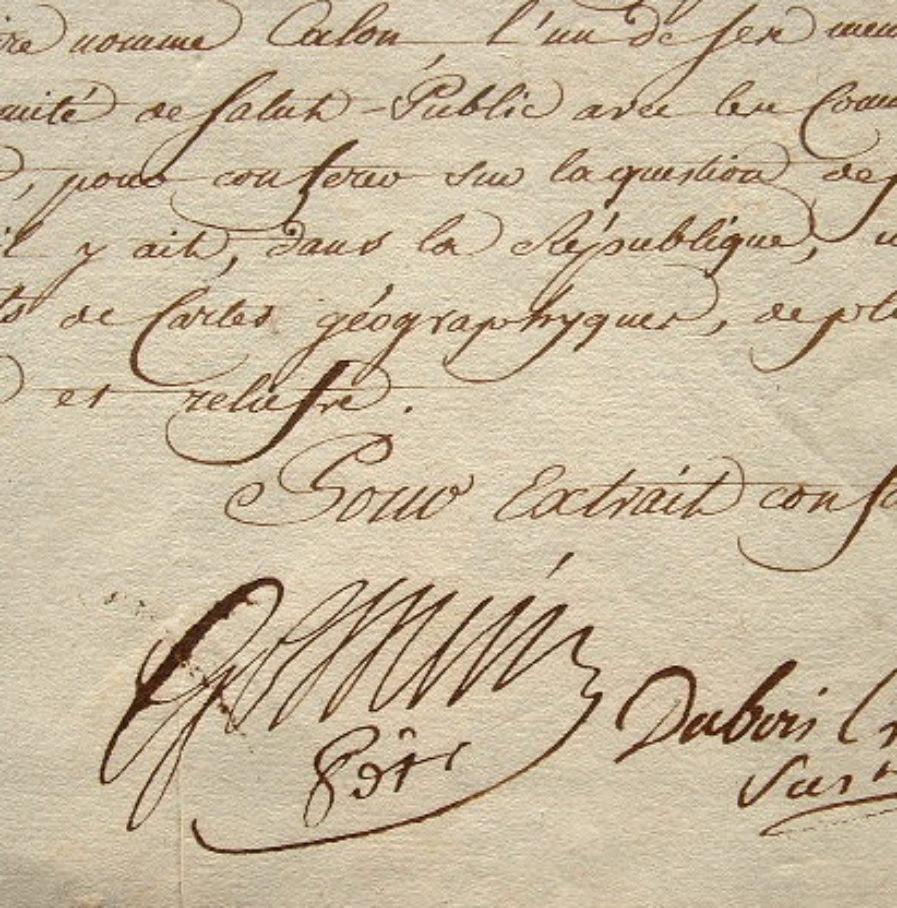 ire nomme Calon, l'un de ses mem
mité de Salut-Public avec les Comm
, pour conférer sur la question de
il y ait, dans la République, u
ts de Cartes géographyques, de pl
et reliefs.
Pour Extrait confo
Pdt
Dubois Cr